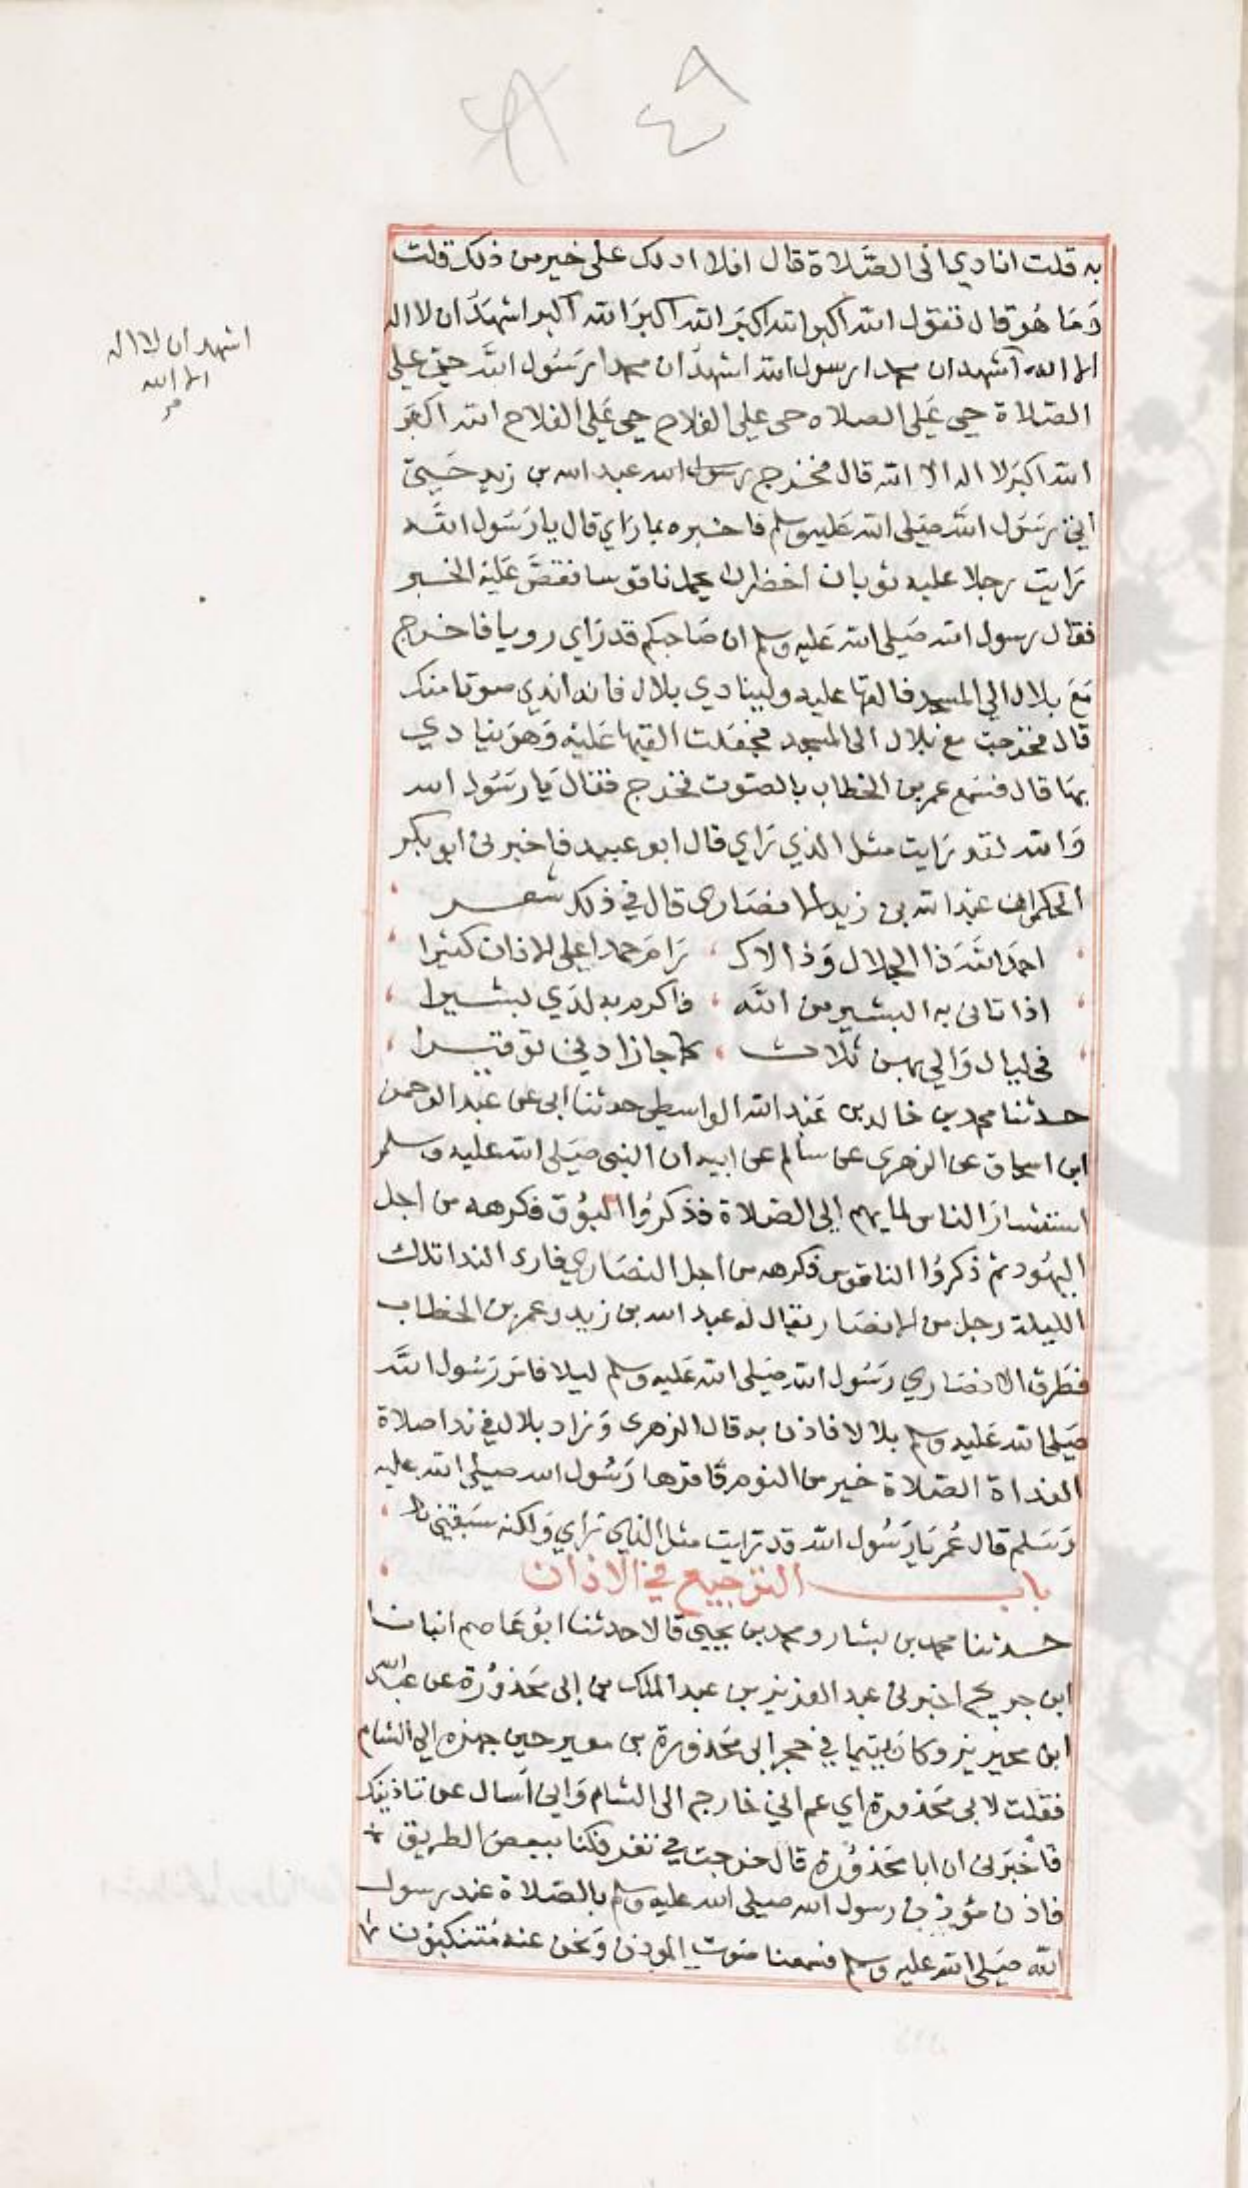 ٤٨
به قلت انادي الى الصَّلاة قال افلا ادلك على خير من ذلك قلت
وَمَا هُو قال تقول الله اكبر الله اكبر الله اكبرَ الله اكبر اشهدُ ان لا اله
الا الله اشهد ان محمدا رسول الله اشهدُ ان محمدا رسُول الله حي على
الصَّلاة حي عَلى الصلاه حى على الفلاح حي عَلى الفلاح الله اكبر
الله اكبر لا اله الا الله قال فخرج رسول الله عبد الله بن زيد حَتى
اتى رسَول الله صَلى الله عَليه وسلم فاخبره بما رَاي قال يا رَسُول الله
رَايت رجلا عليه ثوبان اخضران يحمل ناقوسا فقصَّ عَليْه الخبر
فقال رسول الله صَلى الله عَليه وسلم ان صَاحبكم قد رَاي رويا فاخرج
مَعَ بلال الي المسجد فالقها عليه ولينادي بلال فانه اندي صوتا منك
قال فخرجت مع بلال الى المسجد فجعَلت القيها عَليْه وَهوَ ينادي
بهَا قال فسَمع عمر بن الخطاب بالصَّوت فخرج فقال يَا رسَول الله
وَالله لقد رَايت مثل الذي رَاي قال ابو عبيد فاخبرنى ابو بكر
الحكمى ان عبد الله بن زيد الانصَارى قال في ذلك شعر
احمَد الله ذا الجلال وَذا الاك رَام حمدا على الاذان كثيرا
اذ اتانى به البشير من الله فاكرم به لدَي بشيرا
فى ليال وَالي بهن ثلاث كلما جا زادني توقيرا
حدثنا محمد بن خالد بن عَبد الله الواسطي حدثنا ابى عن عبد الرحمن
ابن اسحاق عن الزهرى عن سالم عن ابيه ان النبى صَلى الله عليه وسلم
استشارَ الناس لما يهم إلي الصَّلاة فذكرُوا البُوق فكرهه من اجل
اليهُود ثم ذكرُوا الناقوس فكرهه من اجل النصَاري فارى الندا تلك
الليلة رجل من الانصَار يقال له عبد الله بن زيد وعمر بن الخطاب
فطَرق الانصَاري رَسُول الله صَلى الله عَليه وسلم ليلا فامَر رَسُول الله
صَلى الله عَليه وسلم بلالا فاذن به قال الزهرى وَزاد بلال في ندا صلاة
الغداة الصَّلاة خير من النوم فاقرها رَسُول الله صلي الله عليه
وَسَلم قال عُمر يَا رَسُول الله قد رَايت مثل الذي رَاي وَلكنه سَبقني
باب الترجيع في الاذان
حدثنا محمد بن بشار ومحمد بن يحيى قالا حدثنا ابوُ عَاصم انبانا
ابن جريج اخبرنى عبد العزيز بن عبد الملك بن ابى محَذوُرة عن عبد الله
ابن محيريز وكان يتيما في حجر ابى محَذورة بن معير حين جهزه الي الشام
فقلت لابى محَذورة اي عم انى خارج الى الشام وَانى اسال عن تاذينك
فاخبَرنى ان ابا محَذوُرة قال خرجت في نفر فكنا ببعض الطريق
فاذن مُوذن رسول الله صلي الله عليه وسلم بالصَّلاة عند رسول
الله صَلى الله عليه وسلم فسمعنا صَوت الموذن وَنحن عنه مُتنكبوُن
اشهد ان لا اله
الا الله